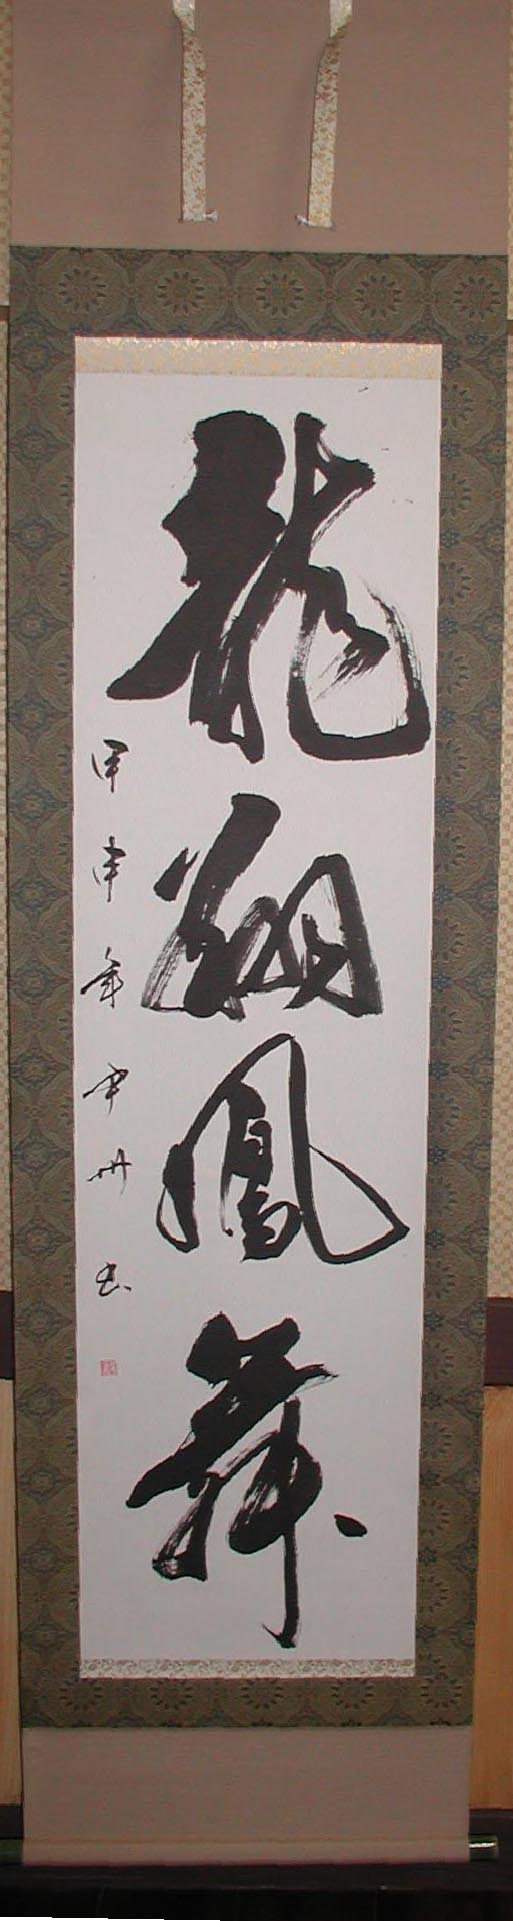 龍翔鳳舞
甲申年中州书